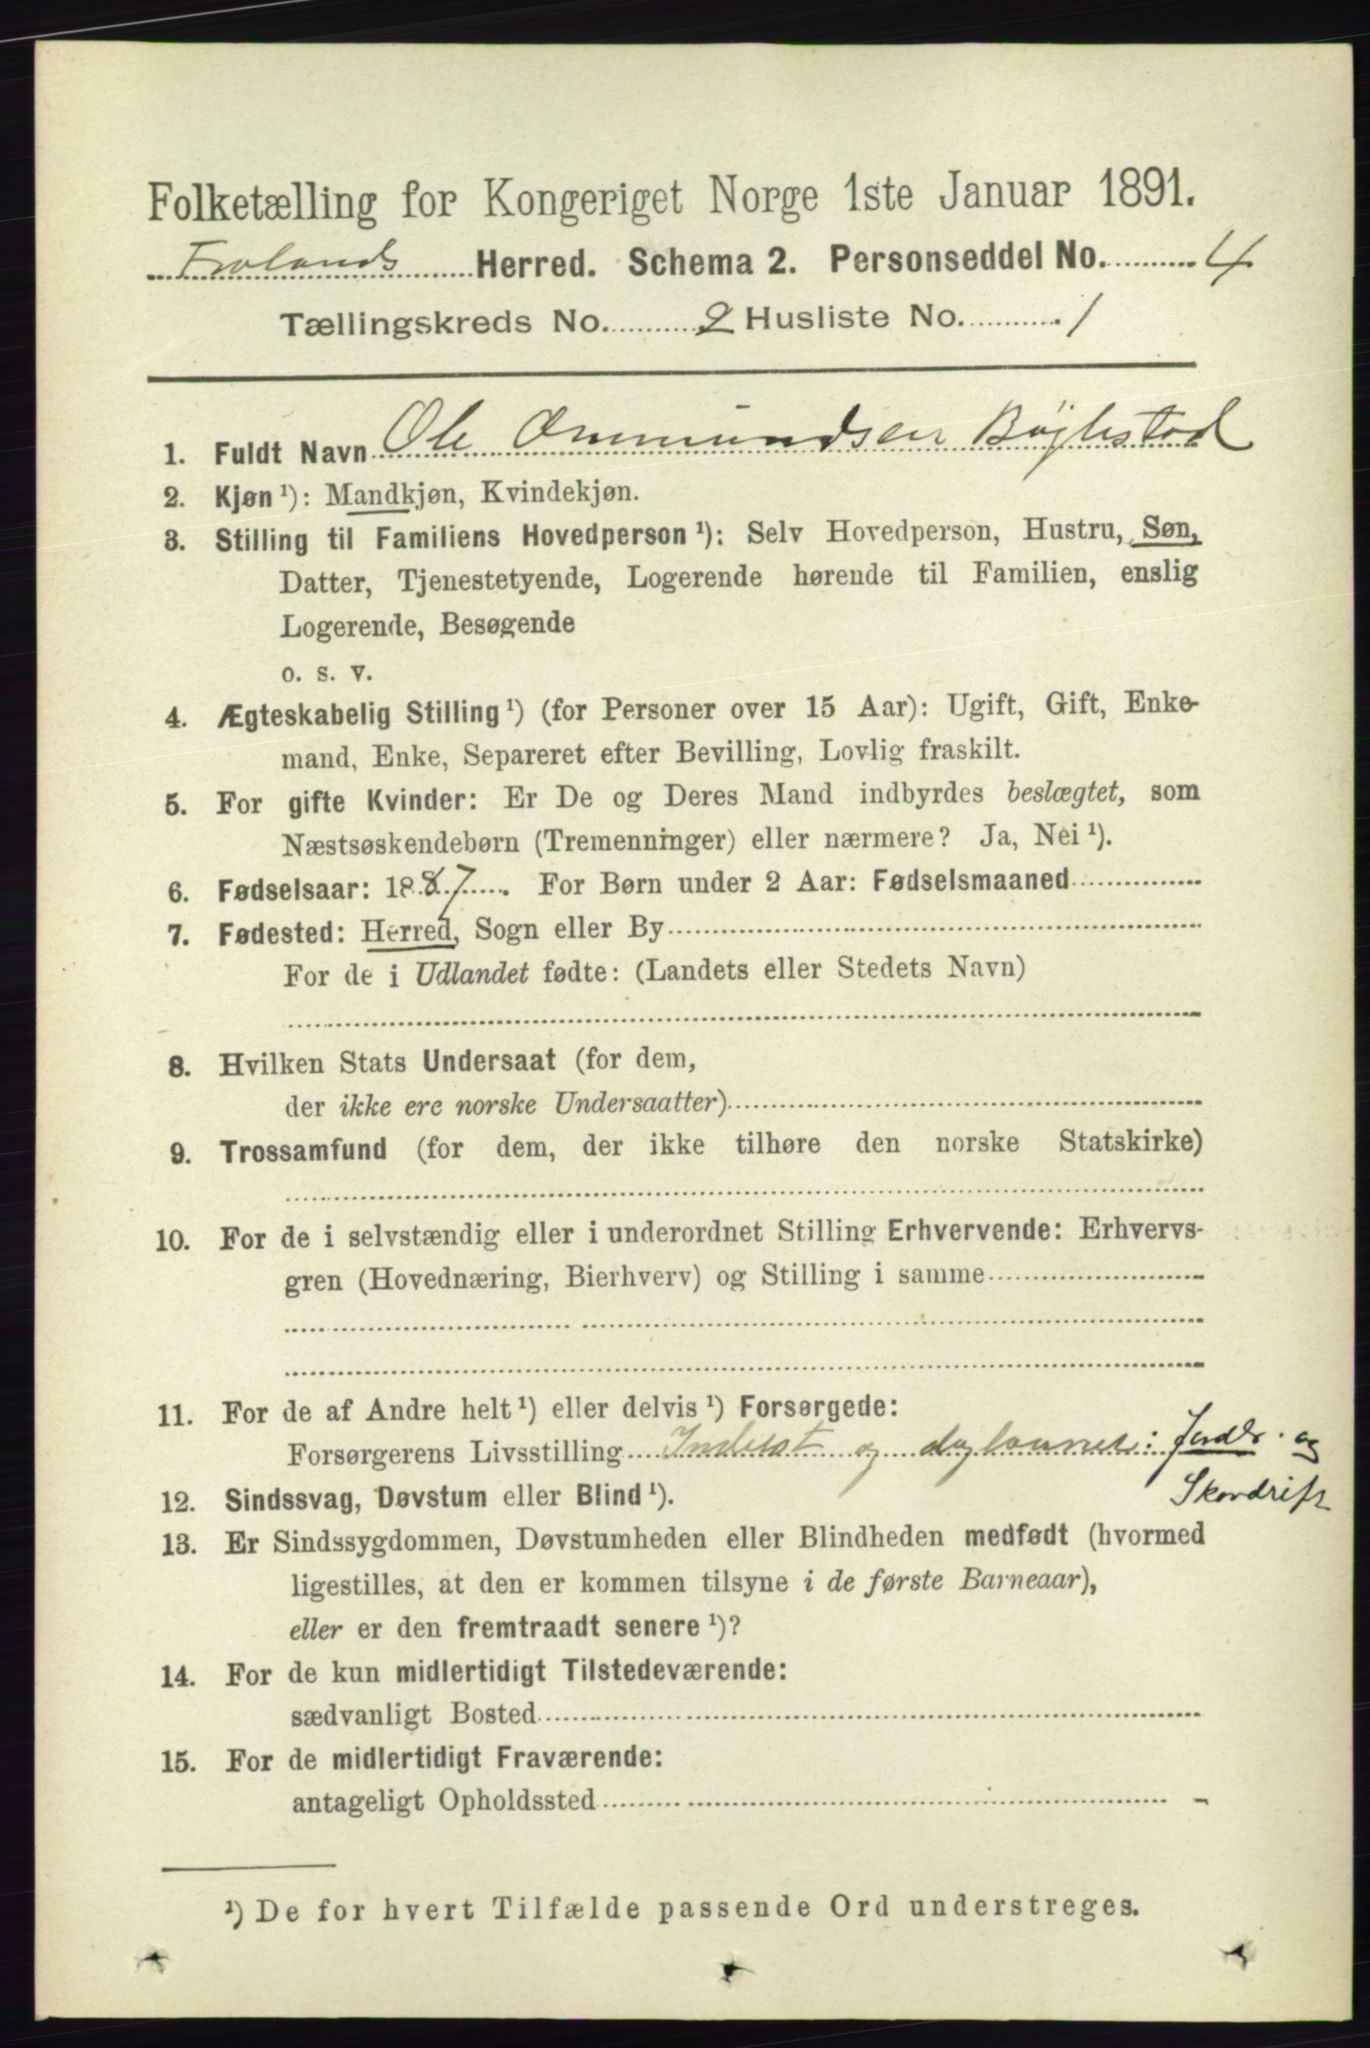 Folketælling for Kongeriget Norge 1ste Januar 1891.
Frolands Herred. Schema 2. Personseddel No. 4
Tællingskreds No. 2 Husliste No. 1
1. Fuldt Navn Ole Ommundsen Bøylestad
2. Kjøn ¹): Mandkjøn, Kvindekjøn.
3. Stilling til Familiens Hovedperson ¹): Selv Hovedperson, Hustru, Søn,
Datter, Tjenestetyende, Logerende hørende til Familien, enslig
Logerende, Besøgende
o. s. v.
4. Ægteskabelig Stilling ¹) (for Personer over 15 Aar): Ugift, Gift, Enke-
mand, Enke, Separeret efter Bevilling, Lovlig fraskilt.
5. For gifte Kvinder: Er De og Deres Mand indbyrdes beslægtet, som
Næstsøskendebørn (Tremenninger) eller nærmere? Ja, Nei ¹).
6. Fødselsaar: 1887. For Børn under 2 Aar: Fødselsmaaned
7. Fødested: Herred, Sogn eller By
For de i Udlandet fødte: (Landets eller Stedets Navn)
8. Hvilken Stats Undersaat (for dem,
der ikke ere norske Undersaatter)
9. Trossamfund (for dem, der ikke tilhøre den norske Statskirke)
10. For de i selvstændig eller i underordnet Stilling Erhvervende: Erhvervs-
gren (Hovednæring, Bierhverv) og Stilling i samme
11. For de af Andre helt ¹) eller delvis ¹) Forsørgede:
Forsørgerens Livsstilling Inderst og daglønner: Jordbr. og
Skovdrift
12. Sindssvag, Døvstum eller Blind ¹).
13. Er Sindssygdommen, Døvstumheden eller Blindheden medfødt (hvormed
ligestilles, at den er kommen tilsyne i de første Barneaar),
eller er den fremtraadt senere ¹)?
14. For de kun midlertidigt Tilstedeværende:
sædvanligt Bosted
15. For de midlertidigt Fraværende:
antageligt Opholdssted
¹) De for hvert Tilfælde passende Ord understreges.